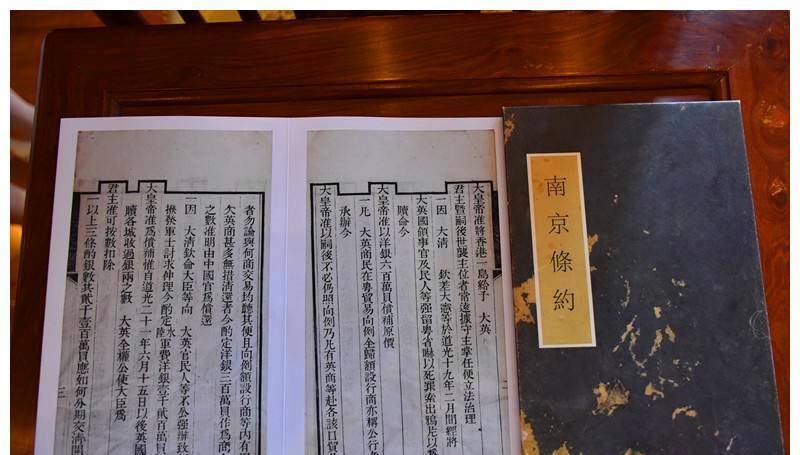 南京條約
大皇帝准將香港一島給予　大英
君主暨嗣後世襲主位者常遠據守主掌任便立法治理
一因　大清　欽差大憲等於道光十九年二月間經將
大英國領事官及民人等强留粵省嚇以死罪索出鴉片以爲
贖命今
大皇帝准以洋銀六百萬員償補原價
一凡　大英商民在粵貿易向例全歸額設行商亦稱公行者
承辦今
大皇帝准以嗣後不必仍照向例乃凡有英商等赴各該口貿
者勿論與何商交易均聽其便且向例額設行商等內有
欠英商甚多無措清還者今酌定洋銀三百萬員作爲商
之數准明由中國官爲償還
一因　大清欽命大臣等向　大英官民人等不公强辦致
撥發軍士討求伸理今酌定水陸軍費洋銀壹千貳百萬員
大皇帝准爲償補惟自道光二十一年六月十五日以後英國
贖各城收過銀兩之數　大英全權公使大臣爲
君主准可按數扣除
一以上三條酌銀數共貳千壹百萬員應如何分期交清開
三